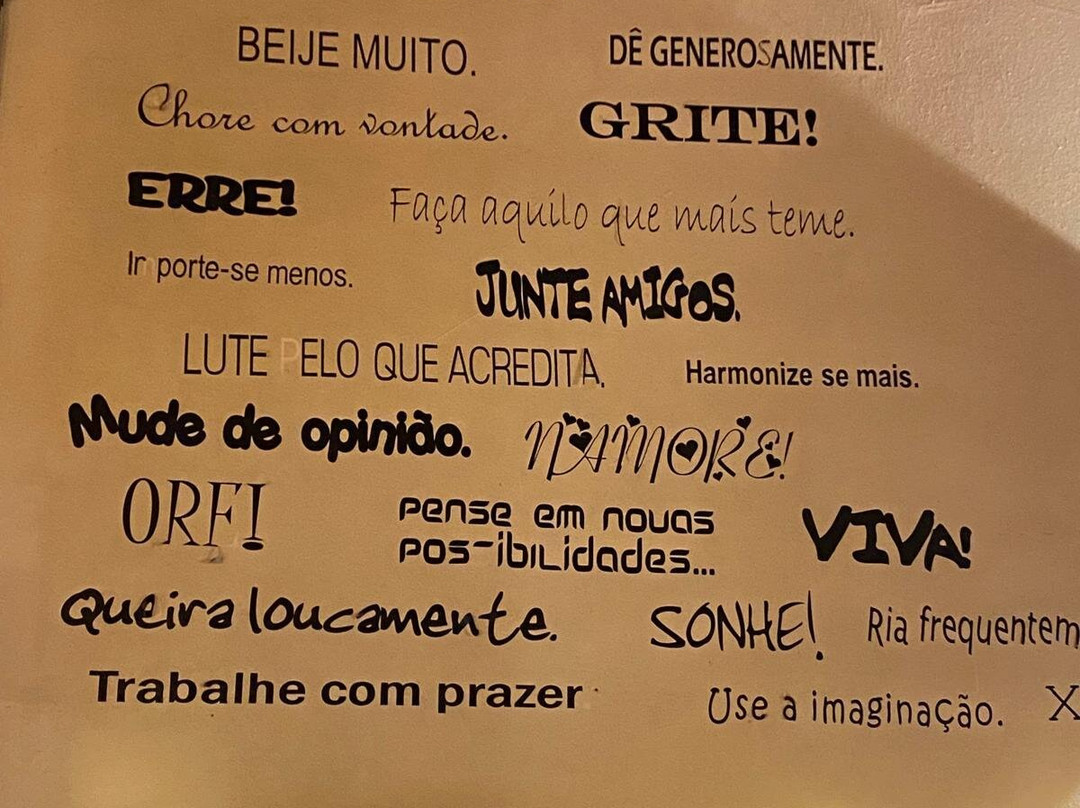 BEIJE MUITO. DÊ GENEROSAMENTE.
Chore com vontade. GRITE!
ERRE! Faça aquilo que mais teme.
Importe-se menos. JUNTE AMIGOS.
LUTE PELO QUE ACREDITA. Harmonize se mais.
Mude de opinião. NAMORE!
ORE! PENSE EM NOVAS
POSSIBILIDADES... VIVA!
Queira loucamente. SONHE! Ria frequentem
Trabalhe com prazer. Use a imaginação. X